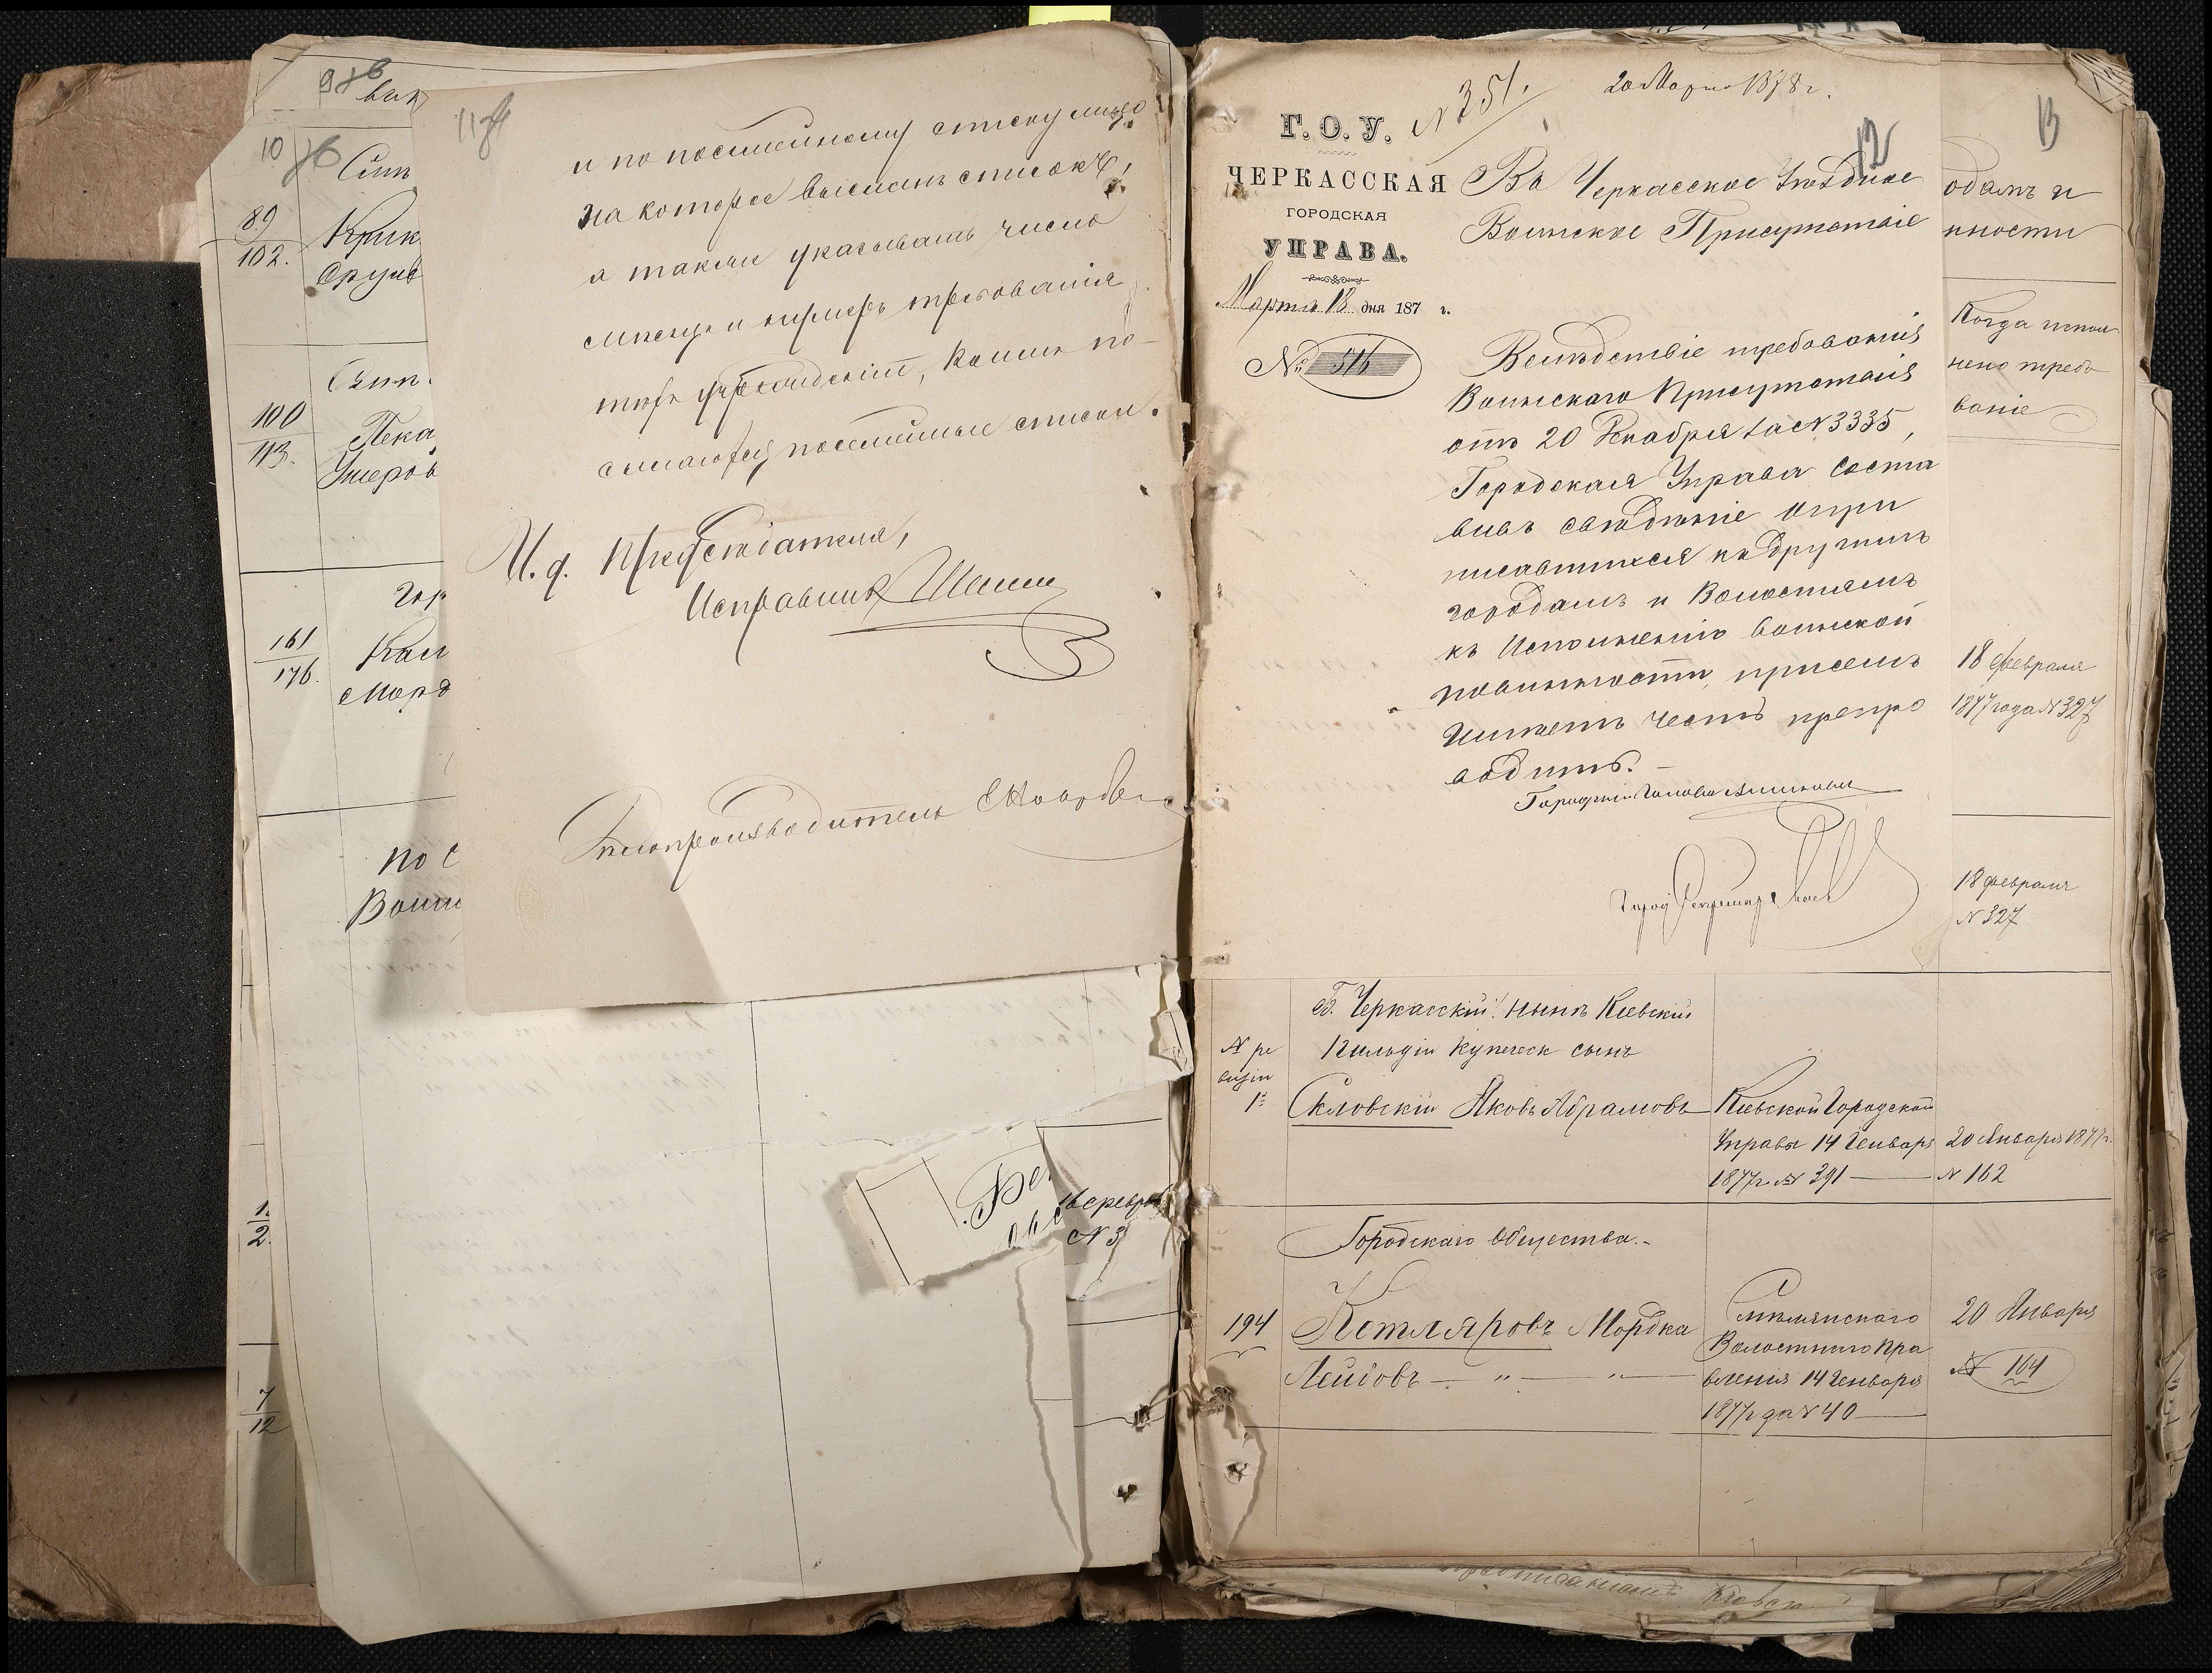 98
вик
10
Сим
89
102.
Крик
Срулв
100
113.
Пека
Умеров
Гор
161
176.
Кам
Морд
по С
Воин
1.
2.
7
12
11
и по посемейному списку лицо
на которое высланъ списокъ,
а также указывать число
месяца и нумеръ требованія
техъ учрежденій, коимъ по-
сылаются посемейные списки.
И. д. Предсѣдателя,
Исправникъ
Делопроизводитель
N 3
N 351.
20 Марта 1878 г.
12
Г. О. У.
ЧЕРКАССКАЯ
ГОРОДСКАЯ
УПРАВА.
Марта 18 дня 187 г.
№ 516
Въ Черкасское Уѣздное
Воинское Присутствіе
Вслѣдствіе требованія
Воинскаго Присутствія
отъ 20 Декабря за N 3335,
Городская Управа соста
вивъ свѣдѣніе о при
писавшихся къ другимъ
городамъ и Волостямъ
къ исполненію воинской
повинности, при семъ
имѣетъ честь препро
водить. —
Городской Голова
Город Секретарь
13
одамъ и
нности
Когда испол
нено требо
ваніе
18 Февраля
1877 года N 327
18 Февраля
N 327
Б. Черкасскій, нынѣ Кіевскій
N ре
визіи
1 гильдіи купеческ сынъ
Скловскій Яковъ Абрамовъ
Кіевской Городской
Управы 14 Генваря
1877 г. N 391 —
20 Января 1877 г.
N 162
Городскаго Общества. -
194
Котляровъ Мордка
Лейбовъ — " — " —
Смѣлянскаго
Волостного Пра
вленія 14 Генваря
1877 г за N 40 —
20 Января
N 164